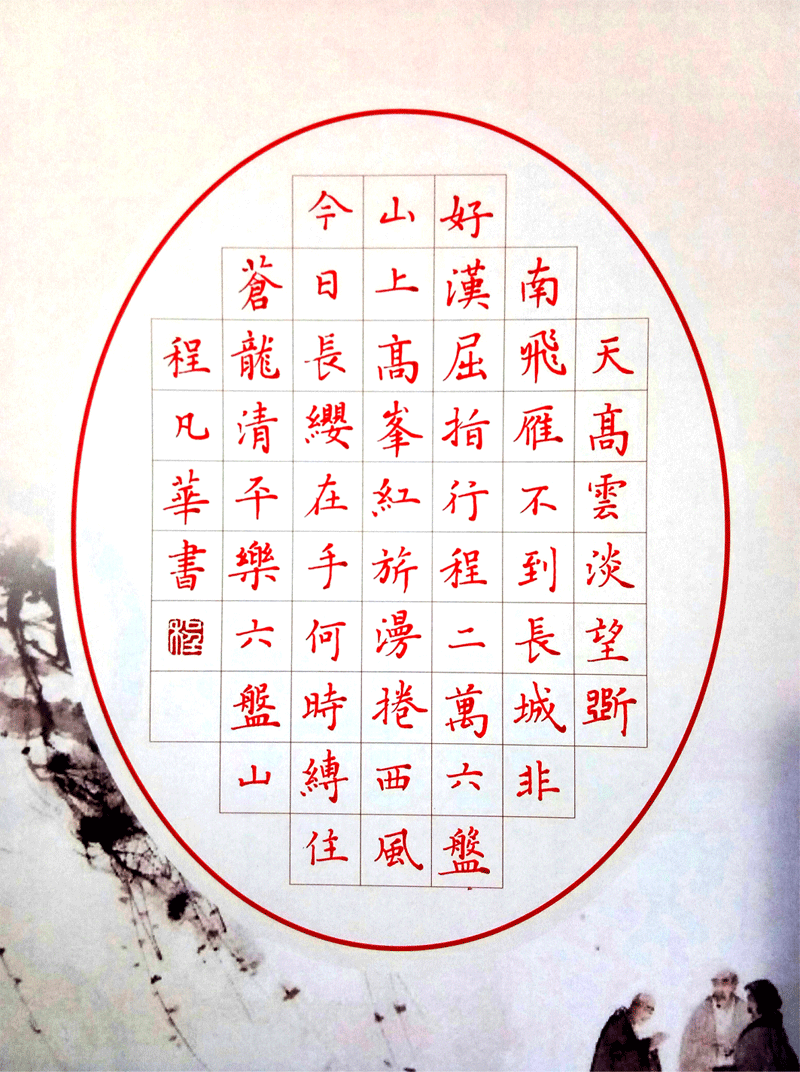 天高雲淡望斷
南飛雁不到長城非
好漢屈指行程二萬六盤
山上高峯紅旂漫捲西風
今日長纓在手何時縛住
蒼龍清平樂六盤山
程凡華書
程